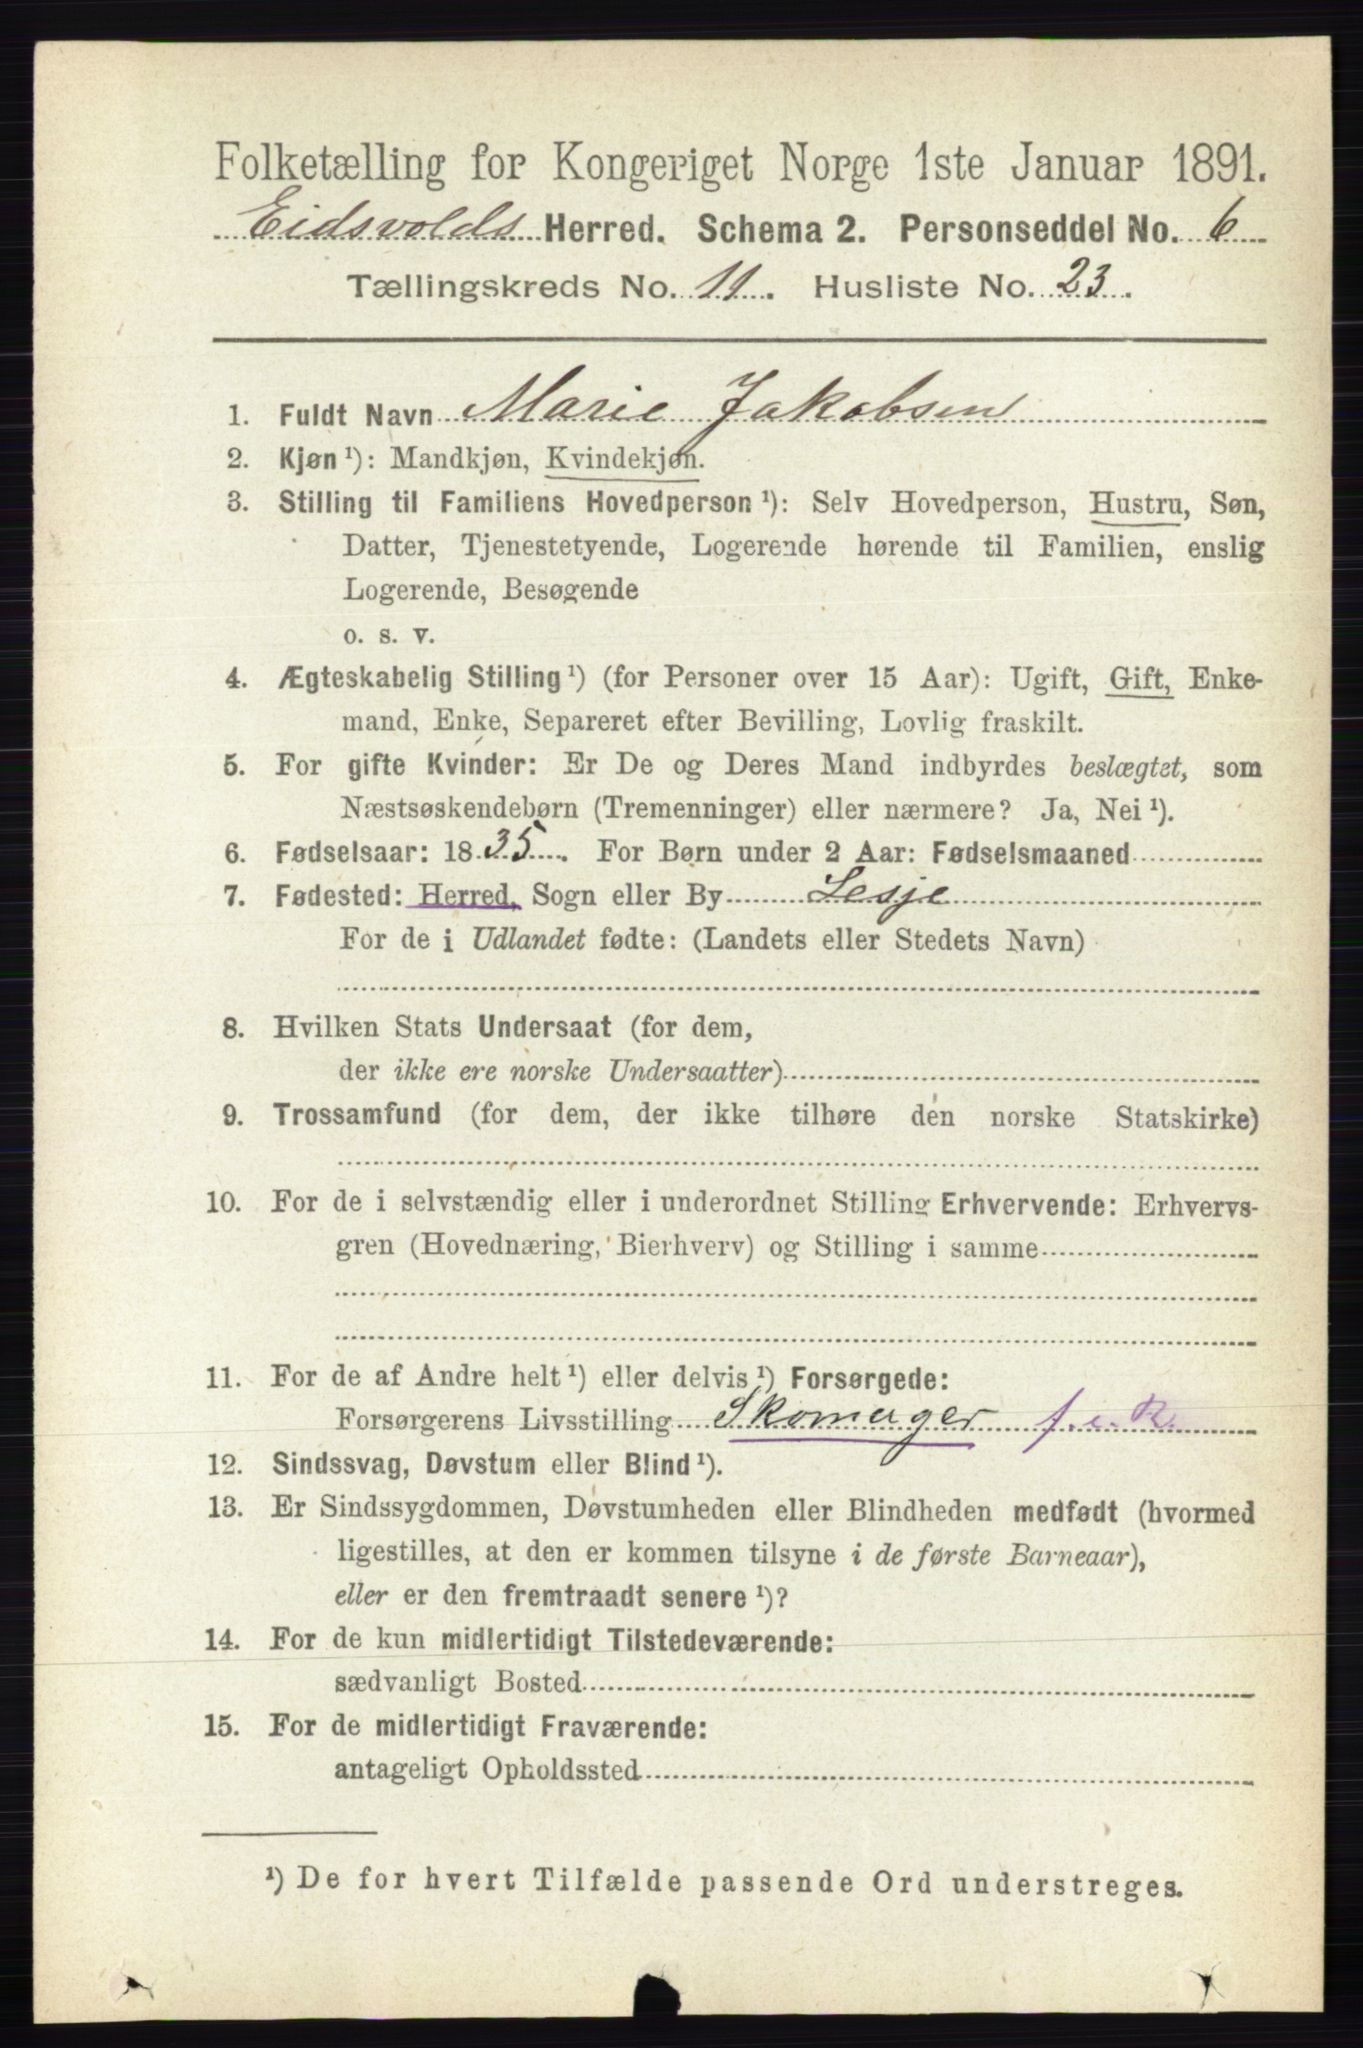 Folketælling for Kongeriget Norge 1ste Januar 1891.
Eidsvolds Herred. Schema 2. Personseddel No. 6
Tællingskreds No. 11. Husliste No. 23.
1. Fuldt Navn Marie Jakobsen
2. Kjøn ¹): Mandkjøn, Kvindekjøn.
3. Stilling til Familiens Hovedperson ¹): Selv Hovedperson, Hustru, Søn,
Datter, Tjenestetyende, Logerende hørende til Familien, enslig
Logerende, Besøgende
o. s. v.
4. Ægteskabelig Stilling ¹) (for Personer over 15 Aar): Ugift, Gift, Enke-
mand, Enke, Separeret efter Bevilling, Lovlig fraskilt.
5. For gifte Kvinder: Er De og Deres Mand indbyrdes beslægtet, som
Næstsøskendebørn (Tremenninger) eller nærmere? Ja, Nei ¹).
6. Fødselsaar: 1835. For Børn under 2 Aar: Fødselsmaaned
7. Fødested: Herred, Sogn eller By Lesje
For de i Udlandet fødte: (Landets eller Stedets Navn)
8. Hvilken Stats Undersaat (for dem,
der ikke ere norske Undersaatter)
9. Trossamfund (for dem, der ikke tilhøre den norske Statskirke)
10. For de i selvstændig eller i underordnet Stilling Erhvervende: Erhvervs-
gren (Hovednæring, Bierhverv) og Stilling i samme
11. For de af Andre helt ¹) eller delvis ¹) Forsørgede:
Forsørgerens Livsstilling Skomager f. e. R.
12. Sindssvag, Døvstum eller Blind ¹).
13. Er Sindssygdommen, Døvstumheden eller Blindheden medfødt (hvormed
ligestilles, at den er kommen tilsyne i de første Barneaar),
eller er den fremtraadt senere ¹)?
14. For de kun midlertidigt Tilstedeværende:
sædvanligt Bosted
15. For de midlertidigt Fraværende:
antageligt Opholdssted
¹) De for hvert Tilfælde passende Ord understreges.